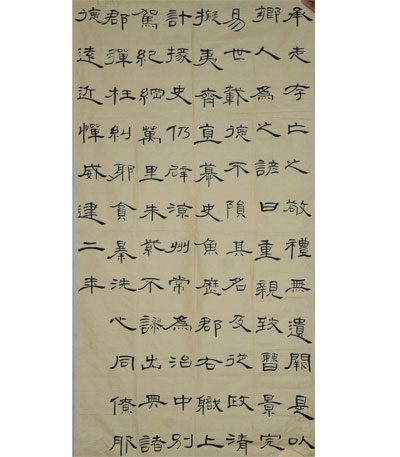 承志存亡之敬禮無遺闕是以
鄉人為之諺曰重親致曹景完
易世載德不隕其名及從政清
擬夷齊直慕史魚歷郡右職上
計掾史仍辟涼州常為治中別
駕紀綱萬里朱紫不謬出典諸
郡彈枉糾邪貪暴洗心同僚服
德遠近憚威建二年